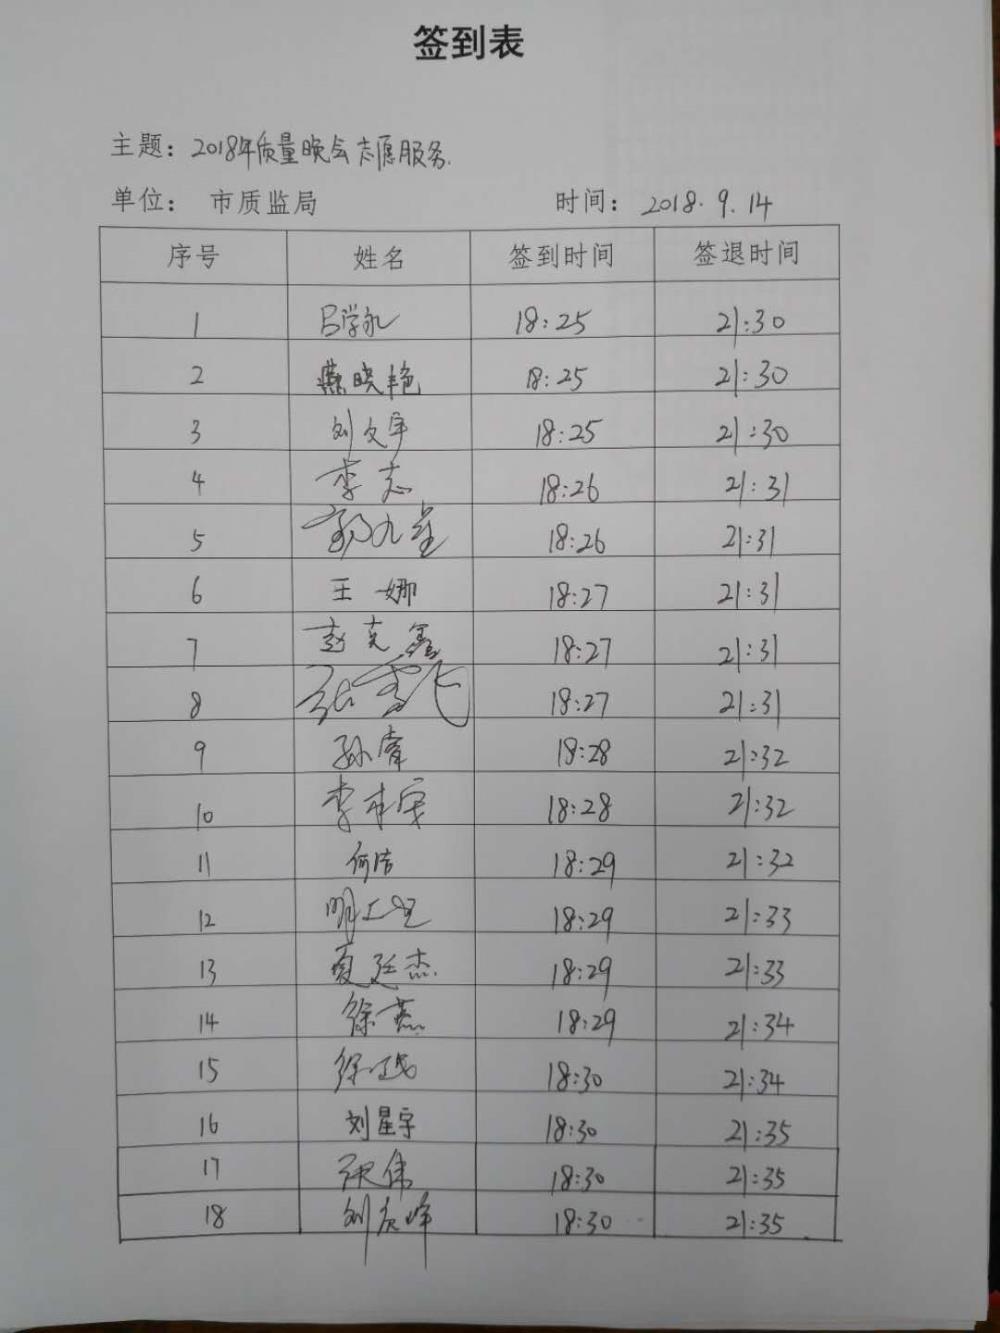 签到表
主题：2018年质量晚会志愿服务.
单位： 市质监局 时间： 2018.9.14
序号 姓名 签到时间 签退时间
1 吕学礼 18:25 21:30
2 燕晓艳 18:25 21:30
3 刘文宇 18:25 21:30
4 李志 18:26 21:31
5 18:26 21:31
6 王娜 18:27 21:31
7 赵克鑫 18:27 21:31
8 18:27 21:31
9 18:28 21:32
10 18:28 21:32
11 何洁 18:29 21:32
12 18:29 21:33
13 夏廷杰 18:29 21:33
14 徐燕 18:29 21:34
15 18:30 21:34
16 刘星宇 18:30 21:35
17 张伟 18:30 21:35
18 18:30 21:35